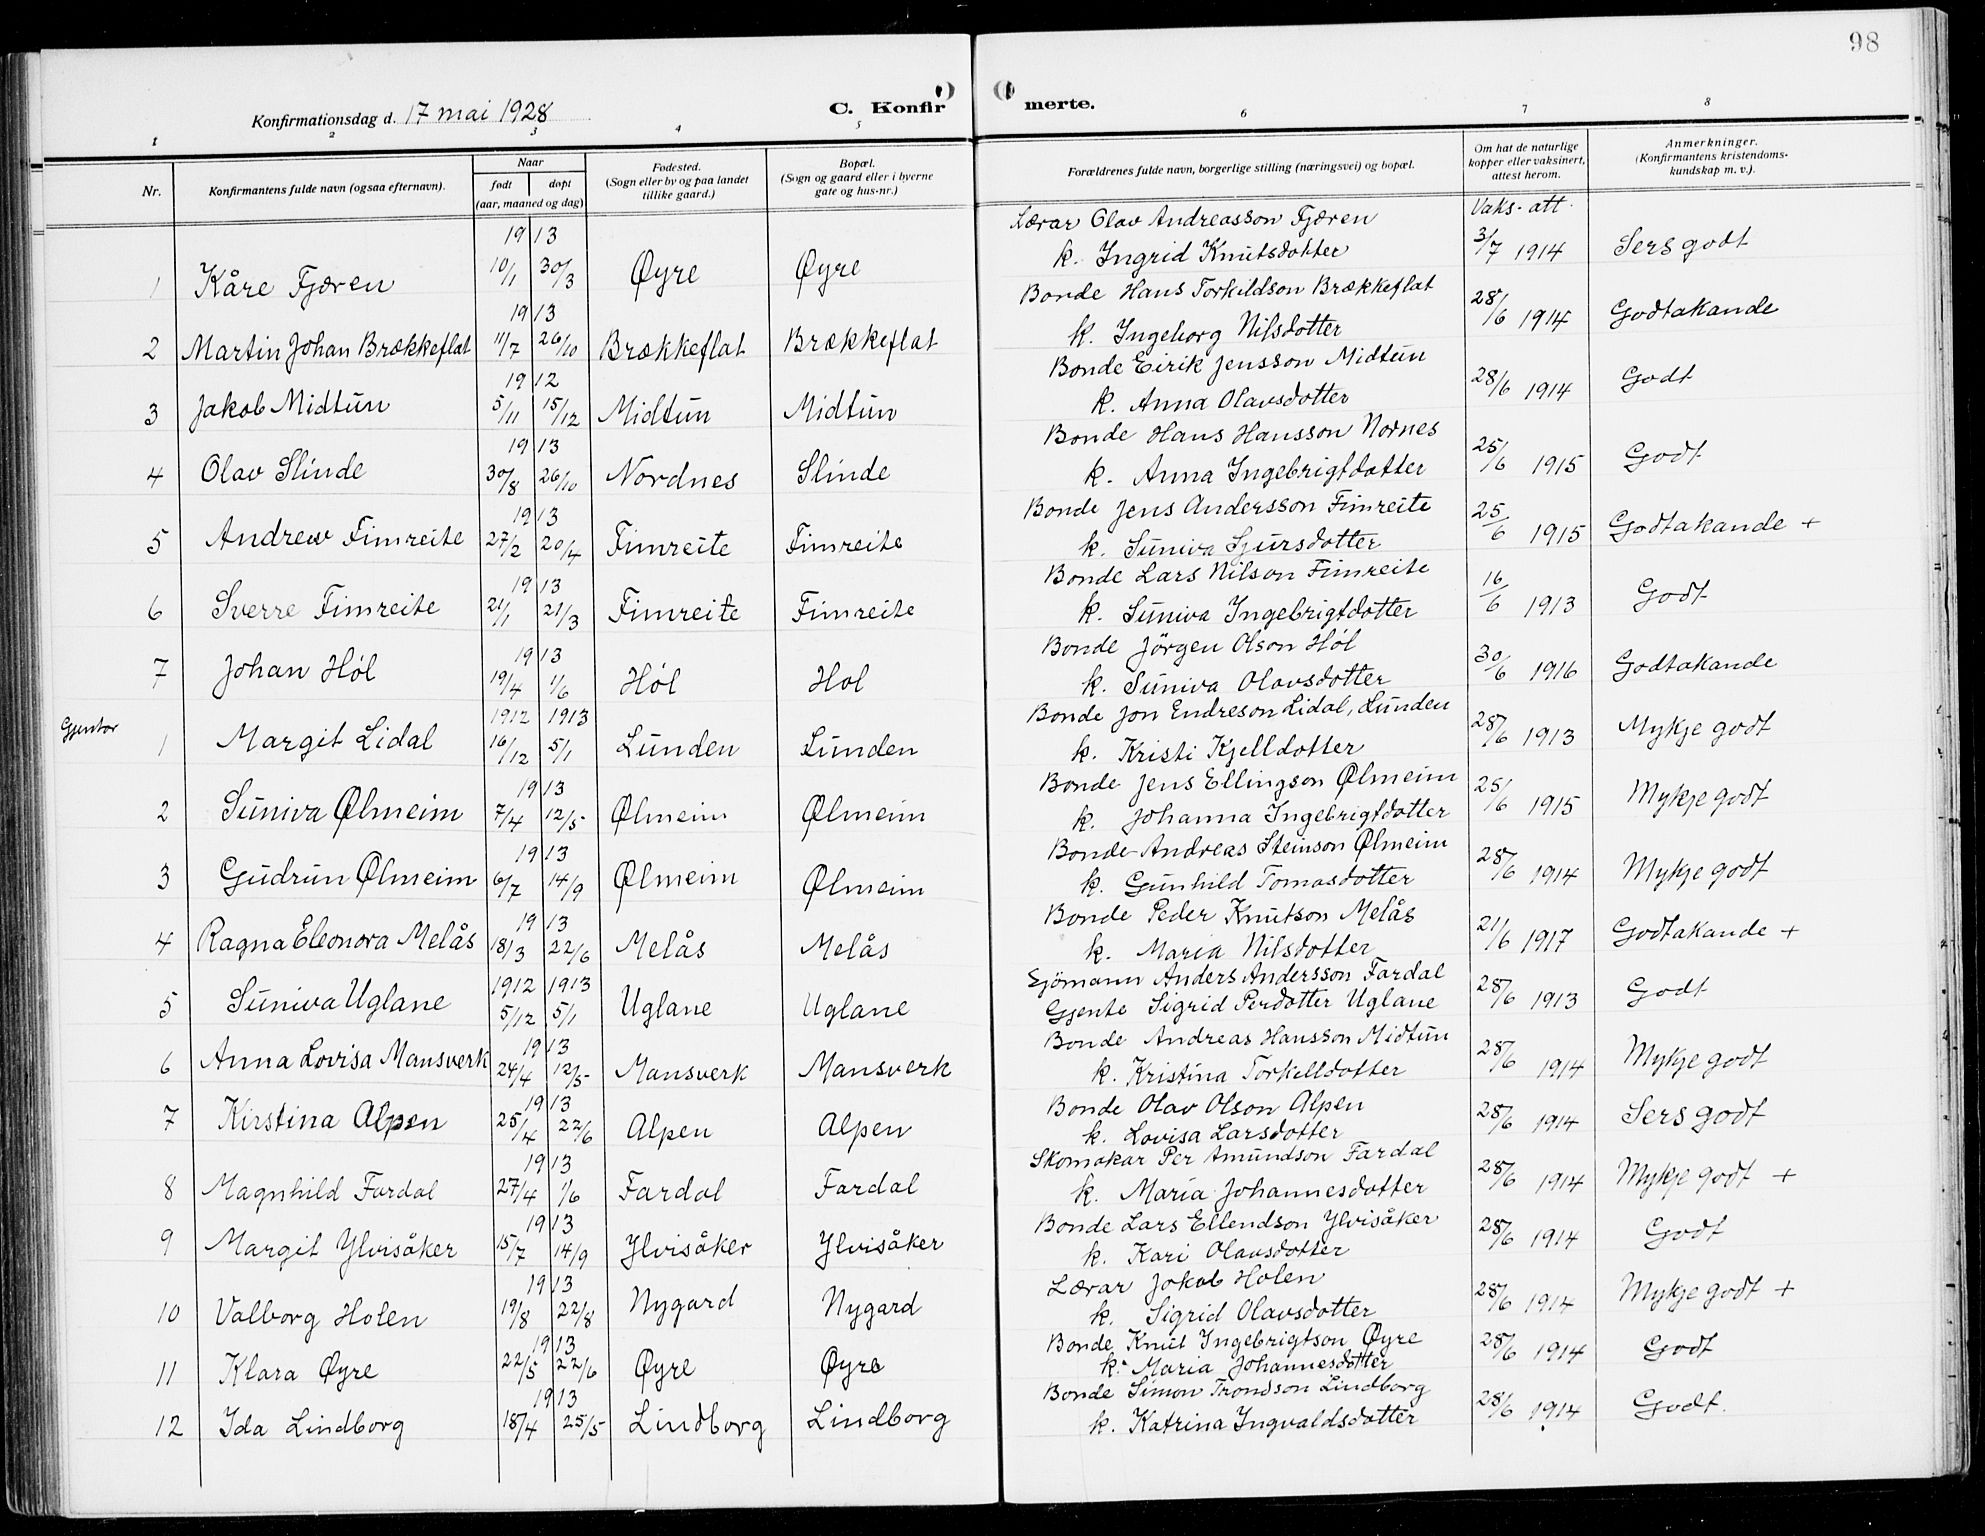 98
Konfirmationsdag d. 17 mai 1928
C. Konfirmerte.
1 2 3 4 5 6 7 8
Nr. Konfirmantens fulde navn (ogsaa efternavn). Naar født døpt (aar, maaned og dag) Fødested. (Sogn eller by og paa landet tillike gaard.) Bopæl. (Sogn og gaard eller i byerne gate og hus-nr.) Forældrenes fulde navn, borgerlige stilling (næringsvei) og bopæl. Om hat de naturlige kopper eller vaksinert, attest herom. Anmerkninger. (Konfirmantens kristendomskundskap m. v.).
Vaks. att.
19 13 Lærar Olav Andreasson Fjæren
1 Kåre Fjæren 10/1 30/3 Øyre Øyre k. Ingrid Knutsdotter 3/7 1914 Sers godt
19 13 Bonde Hans Torkildson Brækkeflat
2 Martin Johan Brækkeflat 11/7 26/10 Brækkeflat Brækkeflat k. Ingeborg Nilsdotter 28/6 1914 Godtakande
19 12 Bonde Eirik Jensson Midtun
3 Jakob Midtun 5/11 15/12 Midtun Midtun k. Anna Olavsdotter 28/6 1914 Godt
19 13 Bonde Hans Hansson Nornes
4 Olav Slinde 30/8 26/10 Nordnes Slinde k. Anna Ingebrigtdotter 25/6 1915 Godt
19 13 Bonde Jens Andersson Fimreite
5 Andrew Fimreite 27/2 20/4 Fimreite Fimreite k. Suniva Sjursdotter 25/6 1915 Godtakande +
19 13 Bonde Lars Nilson Fimreite
6 Sverre Fimreite 21/1 21/3 Fimreite Fimreite k. Suniva Ingebrigtdotter 16/6 1913 Godt
19 13 Bonde Jörgen Olson Høl
7 Johan Høl 19/4 1/6 Høl Hol k. Suniva Olavsdotter 30/6 1916 Godtakande
Gjentor 1912 1913 Bonde Jon Endreson Lidal, Lunden
1 Margit Lidal 16/12 5/1 Lunden Lunden k. Kristi Kjelldotter 28/6 1913 Mykje godt
19 13 Bonde Jens Ellingson Ølmeim
2 Suniva Ølmeim 7/4 12/5 Ølmeim Ølmeim k. Johanna Ingebrigtdotter 25/6 1915 Mykje godt
19 13 Bonde Andreas Steinson Ølmeim
3 Gudrun Ølmeim 6/7 14/9 Ølmeim Ølmeim k. Gunhild Tomasdotter 28/6 1914 Mykje godt
19 13 Bonde Peder Knutson Melås
4 Ragna Eleonora Melås 18/3 22/6 Melås Melås k. Maria Nilsdotter 21/6 1917 Godtakande +
1912 1913 Sjömann Anders Andersson Fardal
5 Suniva Uglane 5/12 5/1 Uglane Uglane Gjente Sigrid Perdotter Uglane 28/6 1913 Godt
19 13 Bonde Andreas Hansson Midtun
6 Anna Lovisa Mansverk 24/4 12/5 Mansverk Mansverk k. Kristina Torkelldotter 28/6 1914 Mykje godt
19 13 Bonde Olav Olson Alpen
7 Kirstina Alpen 25/4 22/6 Alpen Alpen k. Lovisa Larsdotter 28/6 1914 Sers godt
19 13 Skomakar Per Amundson Fardal
8 Magnhild Fardal 27/4 1/6 Fardal Fardal k. Maria Johannesdotter 28/6 1914 Mykje godt +
19 13 Bonde Lars Ellendson Ylvisåker
9 Margit Ylvisåker 15/7 14/9 Ylvisåker Ylvisåker k. Kari Olavsdotter 28/6 1914 Godt
19 13 Lærar Jokob Holen
10 Valborg Holen 19/8 22/8 Nygard Nygard k. Sigrid Olavsdotter 28/6 1914 Mykje godt +
19 13 Bonde Knut Ingebrigtson Øyre
11 Klara Øyre 22/5 22/6 Øyre Øyre k. Maria Johannesdotter 28/6 1914 Godt
19 13 Bonde Simon Trondson Lindborg
12 Ida Lindborg 18/4 25/5 Lindborg Lindborg k. Katrina Ingvaldsdotter 28/6 1914 Godt.